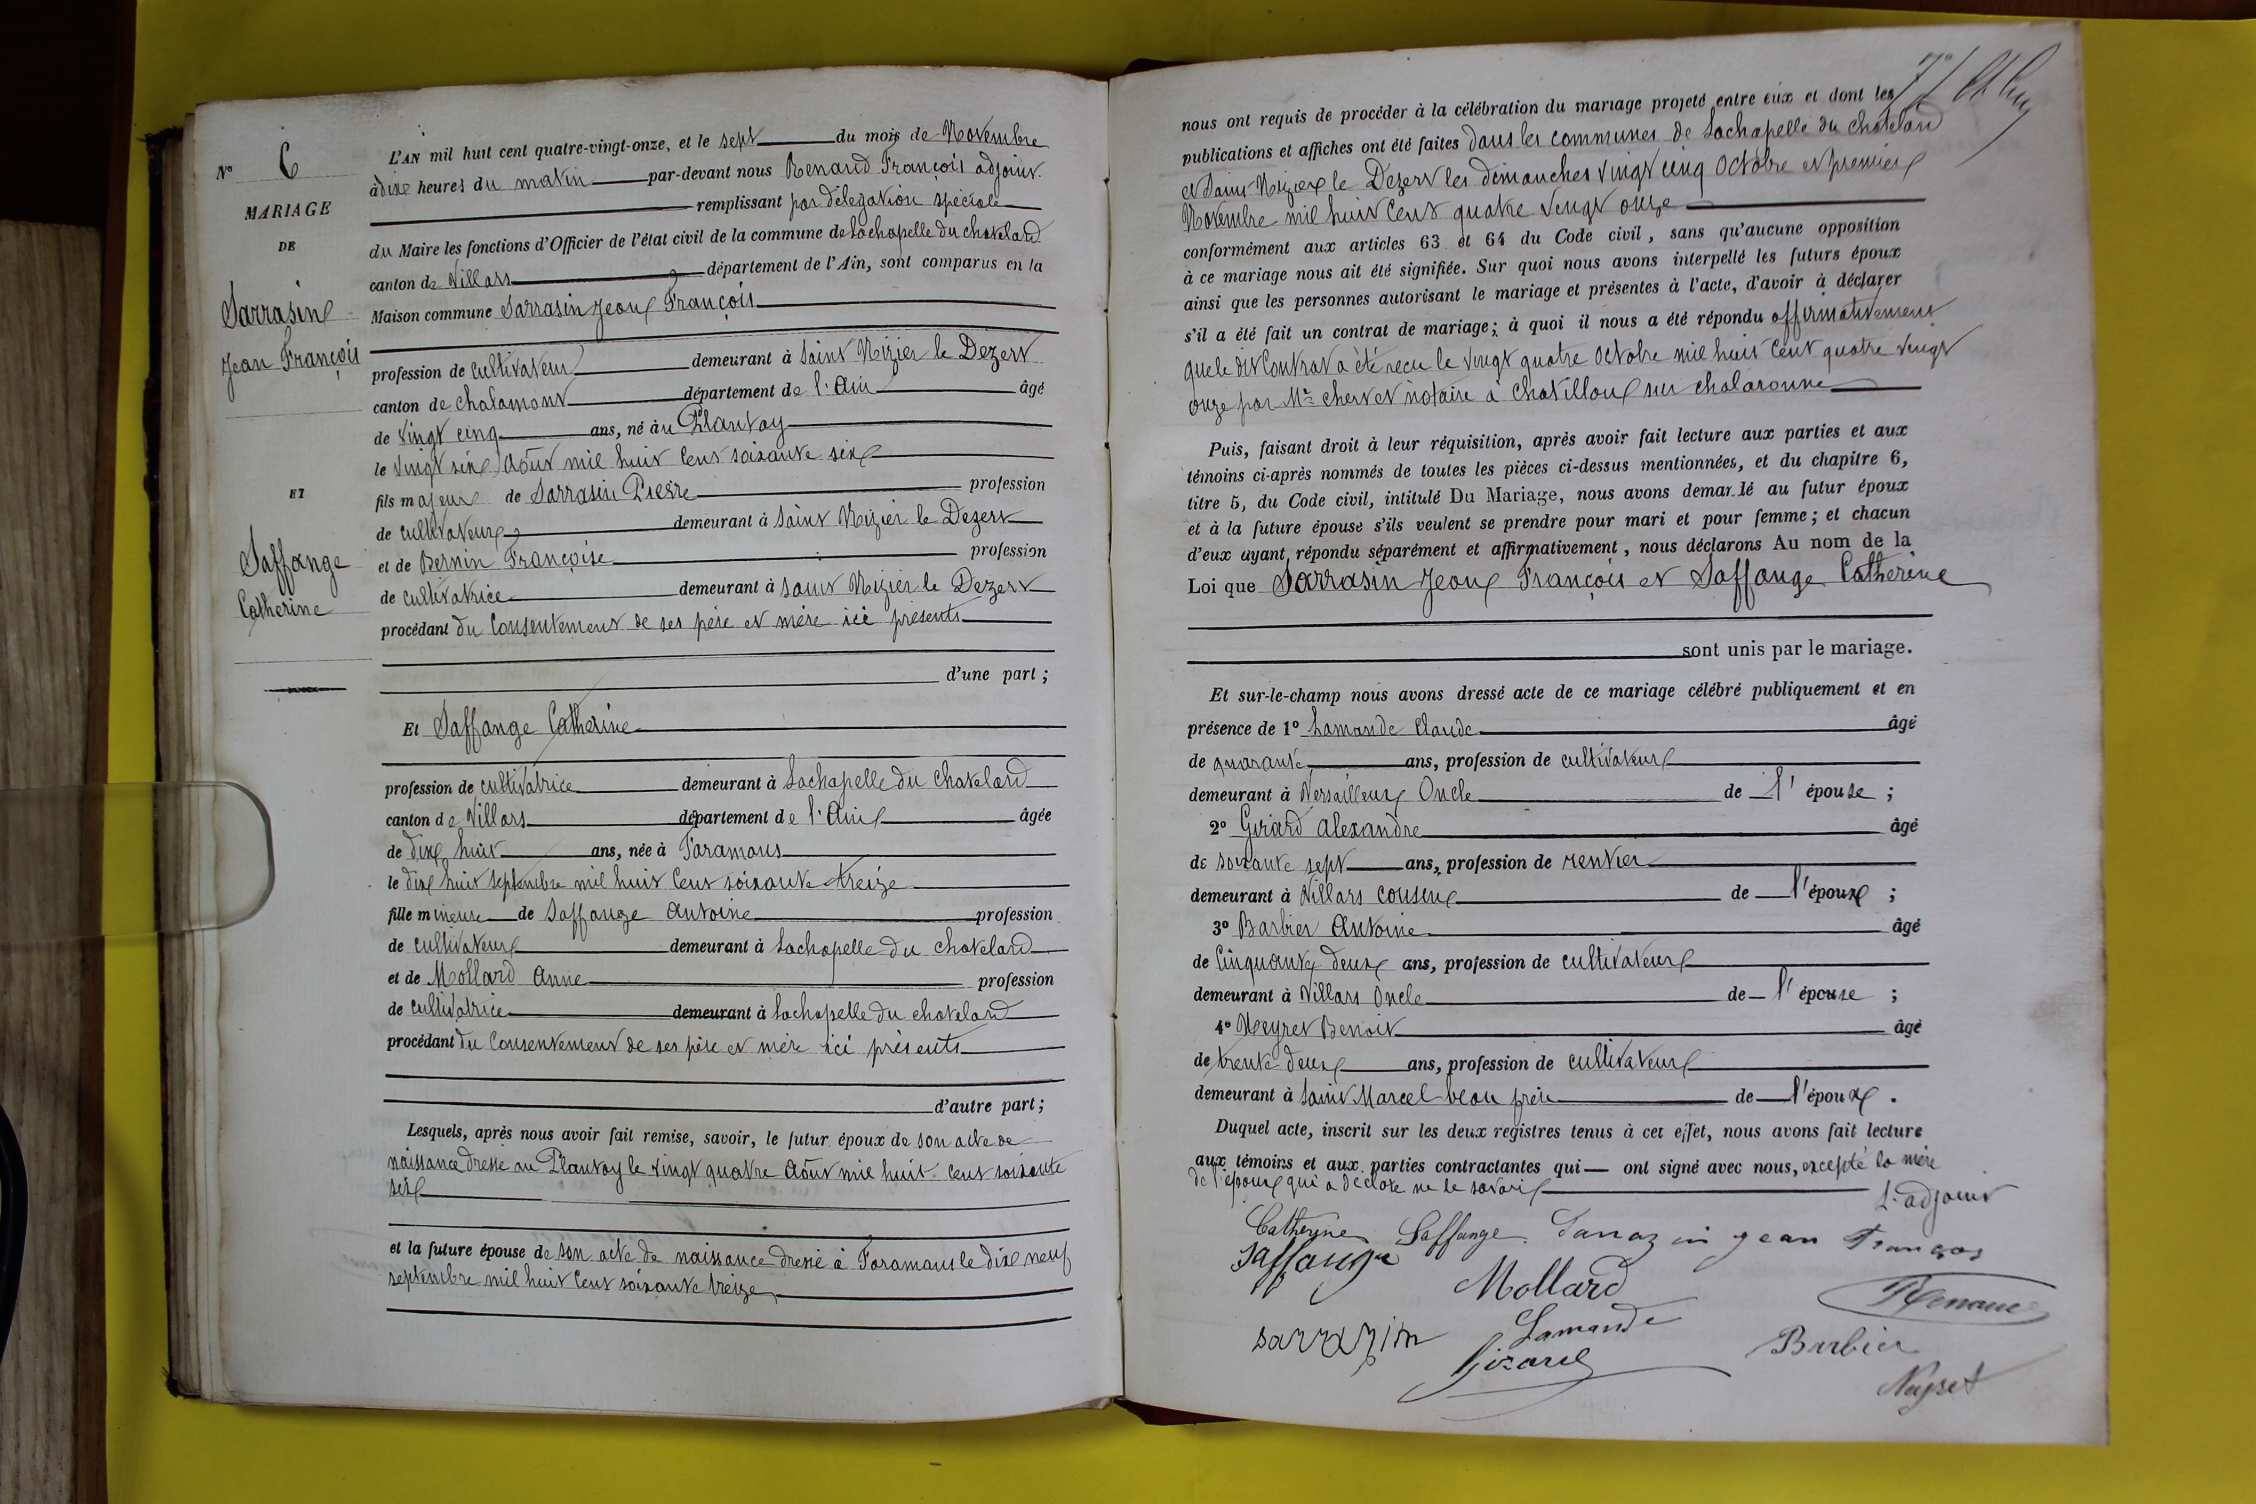 N° 6
MARIAGE
DE
Sarrasin
Jean François
ET
Saffange
Catherine
L'AN mil huit cent quatre-vingt-onze, et le sept du mois de Novembre
à dix heures du matin par-devant nous Renaud François adjoint
remplissant par délégation spéciale
du Maire les fonctions d'Officier de l'état civil de la commune de Lachapelle du chatelard
canton de Villars département de l'Ain, sont comparus en la
Maison commune Sarrasin Jean François
profession de cultivateur demeurant à Saint Nizier le Dezert
canton de chalamont département de l'Ain âgé
de vingt cinq ans, né au Plantay
le vingt six Août mil huit cent soixante six
fils majeur de Sarrasin Pierre profession
de cultivateur demeurant à Saint Nizier le Dezert
et de Bernin Françoise profession
de cultivatrice demeurant à saint Nizier le Dezert
procédant du consentement de ses père et mère ici présents
d'une part ;
Et Saffange Catherine
profession de cultivatrice demeurant à Lachapelle du chatelard
canton de Villars département de l'Ain âgée
de dix huit ans, née à Faramans
le dix huit septembre mil huit cent soixante treize
fille mineure de Saffange Antoine profession
de cultivateur demeurant à Lachapelle du chatelard
et de Mollard Anne profession
de cultivatrice demeurant à Lachapelle du chatelard
procédant du consentement de ses père et mère ici présents
d'autre part ;
Lesquels, après nous avoir fait remise, savoir, le futur époux de son acte de
naissance dressé au Plantay le vingt quatre Août mil huit cent soixante
six
et la future épouse de son acte de naissance dressé à Faramans le dix neuf
septembre mil huit cent soixante treize
nous ont requis de procéder à la célébration du mariage projeté entre eux et dont les
publications et affiches ont été faites dans les communes de Lachapelle du chatelard
et Saint-Nizier le Dezert les dimanches vingt cinq Octobre et premier
Novembre mil huit cent quatre vingt onze
conformément aux articles 63 et 64 du Code civil, sans qu'aucune opposition
à ce mariage nous ait été signifiée. Sur quoi nous avons interpellé les futurs époux
ainsi que les personnes autorisant le mariage et présentes à l'acte, d'avoir à déclarer
s'il a été fait un contrat de mariage ; à quoi il nous a été répondu affirmativement
que le dit contrat a été reçu le vingt quatre octobre mil huit cent quatre vingt
onze par Mr chervet notaire à chatillon sur chalaronne
Puis, faisant droit à leur réquisition, après avoir fait lecture aux parties et aux
témoins ci-après nommés de toutes les pièces ci-dessus mentionnées, et du chapitre 6,
titre 5, du Code civil, intitulé Du Mariage, nous avons demandé au futur époux
et à la future épouse s'ils veulent se prendre pour mari et pour femme ; et chacun
d'eux ayant répondu séparément et affirmativement, nous déclarons Au nom de la
Loi que Sarrasin Jean François et Saffange Catherine
sont unis par le mariage.
Et sur-le-champ nous avons dressé acte de ce mariage célébré publiquement et en
présence de 1° Lamande Claude âgé
de quarante ans, profession de cultivateur
demeurant à Versailleux Oncle de l'épouse ;
2° Girard Alexandre âgé
de soixante sept ans, profession de rentier
demeurant à Villars cousin de l'époux ;
3° Barbier Antoine âgé
de cinquante deux ans, profession de cultivateur
demeurant à Villars Oncle de l'épouse ;
4° Neyret Benoit âgé
de trente deux ans, profession de cultivateur
demeurant à Saint Marcel beau frère de l'époux.
Duquel acte, inscrit sur les deux registres tenus à cet effet, nous avons fait lecture
aux témoins et aux parties contractantes qui ont signé avec nous, excepté la mère
de l'époux qui a déclaré ne le savoir
L'adjoint
Catherine Saffange Sarrazin jean François
Saffange
Mollard
Renaud
sarrazin
Lamande
Girard
Barbier
Neyret